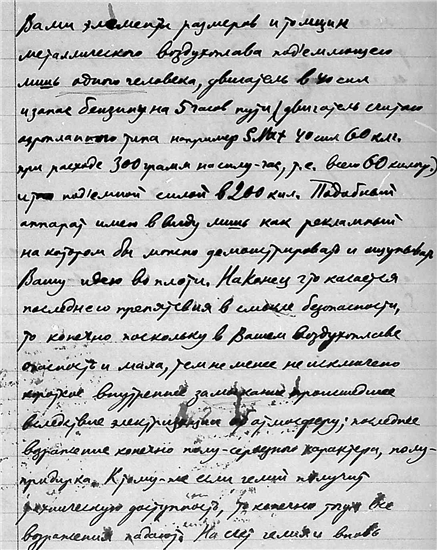 Вами элементы размеров и толщин
металлического воздухоплава под'емлющего
лишь одного человека, двигатель в 40 сил
и запас бензину на 5 часов пути (двигатель считаю
аэропланного типа например 40 сил 60 клг.
при расходе 300 грамм на силу-час, т.е. всего 60 килогр.)
и под'емной силой в 200 кил. Подобный
аппарат имею в виду лишь как рекламный
на котором бы можно демонстрировать и ощупывать
Вашу идею во плоти. Наконец что касается
последнего препятствия в смысле безопасности,
то конечно поскольку в Вашем воздухоплаве
опасность и мала, тем не менее не исключено
короткое внутреннее замыкание происшедшее
вследствие электризации об атмосферу; последнее
возражение конечно полу-серьозного характера, полу-
придирка. К тому-же если гелий получит
техническую доступность, то конечно тогда все
возражения падают. На счет гелия и вновь